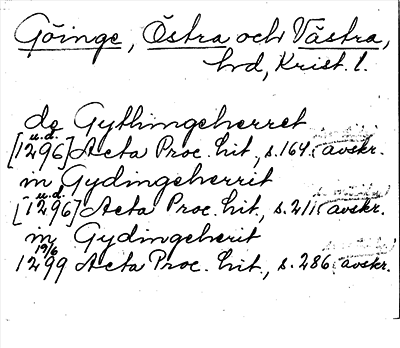 Göinge, Östra och Västra,
hd, Krist. l.
de Gythingeherret
u.d.
[1296] Acta Proc. lit., s. 164. avskr.
in Gydingeherrit
u.d.
[1296] Acta Proc. lit., s. 211. avskr.
in Gydingeherit
19/6
1299 Acta Proc. lit., s. 286. avskr.